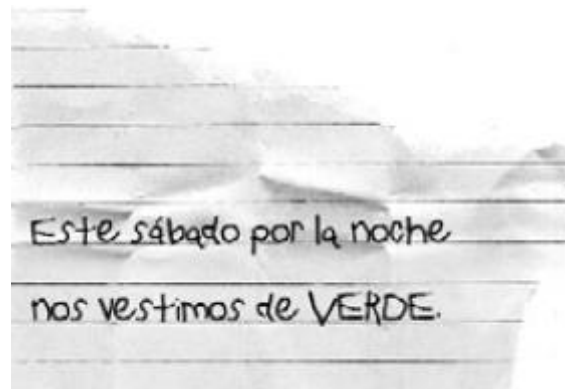 Este sábado por la noche
nos vestimos de VERDE.